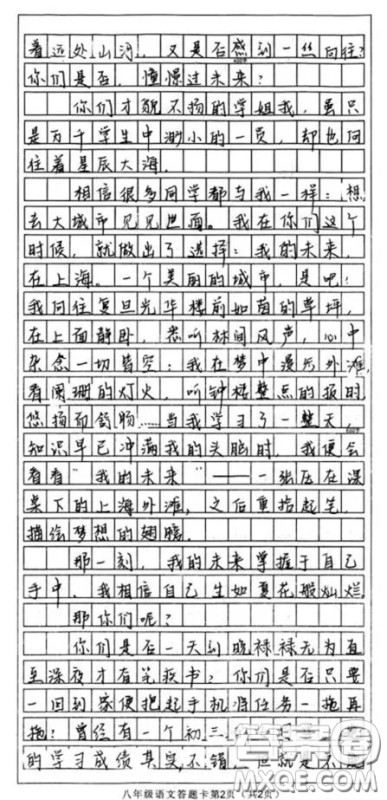 着远处山河，又是否感到一丝向往？
你们是否，憧憬过未来？
你们才貌不扬的学姐我，虽只
是万千学生中渺小的一员，却也向
往着星辰大海。
相信很多同学都与我一样：想
去大城市见见世面。我在你们这个
时候，就做出了选择：我的未来，
在上海。一个美丽的城市，是吧！
我向往复旦光华楼前如茵的草坪，
在上面静卧，忝听林间风声，心中
杂念一切皆空；我在梦中漫步外滩，
看阑珊的灯火，听钟楼整点的报时，
悠扬而舒畅……当我学习了一整天，
知识早已冲满我的头脑时，我便会
看看"我的未来"——一张压在课
桌下的上海外滩，之后重拾起笔，
描绘梦想的翅膀。
那一刻，我的未来掌握于自己
手中，我相信自己生如夏花般灿烂。
那你们呢？
你们是否一天到晚碌碌无为直
至深夜才有笔疾书？你们是否只要
一回到家便抱起手机将任务一拖再
拖？曾经有一个初三
的学习成绩其实不错，但就是不
八年级语文答题卡第2页（共2页）